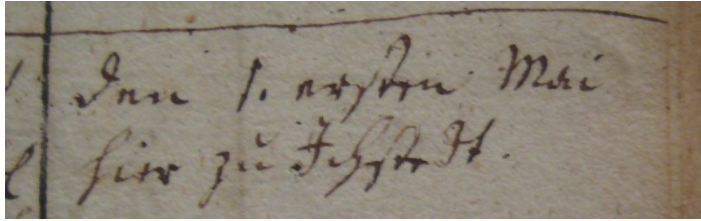 den 1. ersten Mai
hier zu Ichstedt.